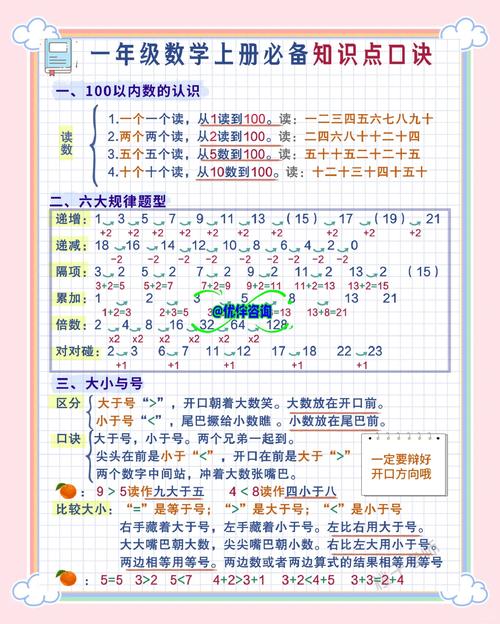 一年级数学上册必备知识点口诀
一、100以内数的认识
读数
1.一个一个读，从1读到100。读：一二三四五六七八九十
2.两个两个读，从2读到100。读：二四六八十十二十四
3.五个五个读，从5数到100。读：五十十五二十二十五
4.十个十个读，从10数到100。读：十二十三十四十五十
二、六大规律题型
递增：1 3 5 7 9 11 13 （15）（17） 19 21
+2 +2 +2 +2 +2 +2 +2 +2
递减：18 16 14 12 10 8 6 4 2 0
-2 -2 -2 -2 -2 -2 -2 -2
隔项：3 2 5 2 7 2 9 2 11 2 13 2 （15）
3+2=5 5+2=7 7+2=9 9+2=11 11+2=13 13+2=15
累加：1 2 3 5 8 13 21
1+2=3 2+3=5 3+5=8 5+8=13 13+8=21
@优伴咨询
倍数：2 4 8 16 32 64 128
x2 x2 x2 x2 x2 x2
对对碰：2 3 6 7 11 12 17 18 22 23
+1 +1 +1 +1 +1
三、大小与号
区分 大于号“>”，开口朝着大数笑。大数放在开口前。
小于号“<”，尾巴撅给小数瞧。小数放在尾巴前。
口诀 大于号，小于号。两个兄弟一起到。
尖头在前是小于“<”，开口在前是大于“>”
两个数字中间站，冲着大数张嘴巴。
一定要辩好
开口方向哦
：9＞5读作九大于五 4＜8读作四小于八
比较大小：“=”是等于号；“>”是大于号；“<”是小于号
右手藏着大于号，左手藏着小于号。左比右大用大于号。
大大嘴巴朝大数，尖尖嘴巴朝小数。右比左大用小于号。
两边相等用等号。两边数或者两边算式的结果相等用等号
：5=5 3>2 5<7 4+2>3+1 3+2<4+5 3+3=2+4